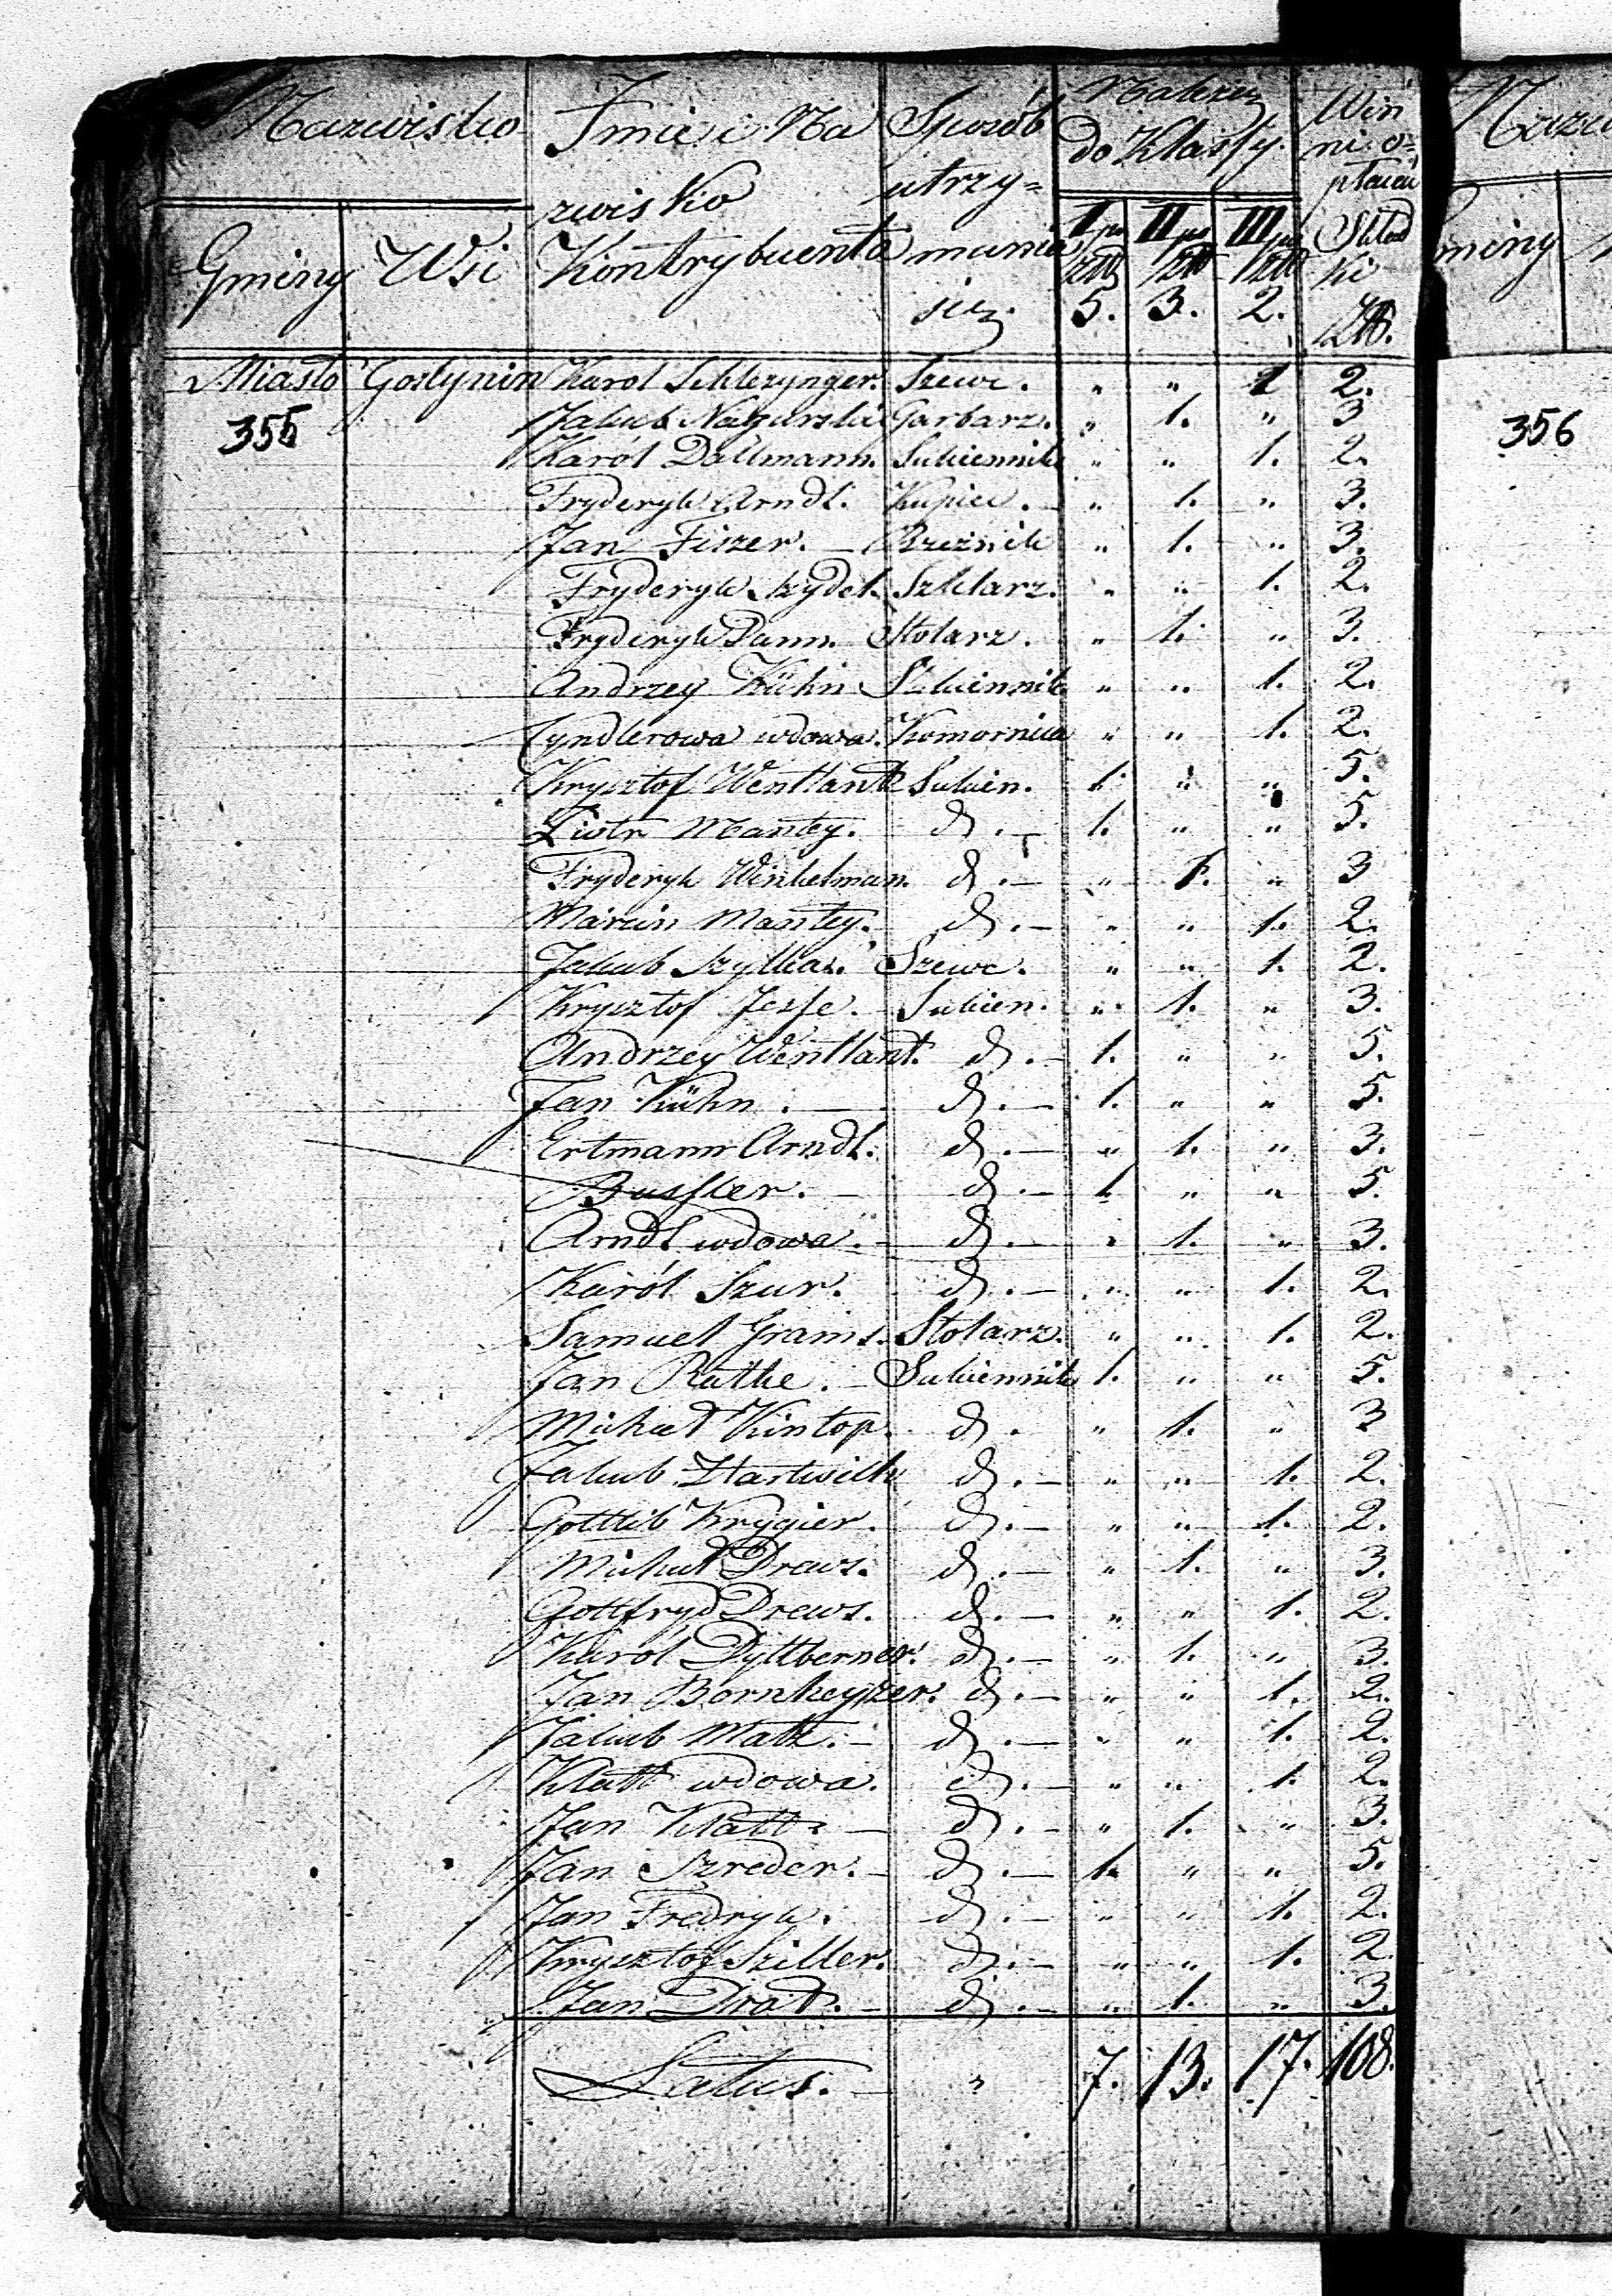 Nazwisko Imie i Na Sposób Należą Win
do Klassy. ni o=
zwisko utrzy= płacać
Gminy Wsi Kontrybuenta mania I po II po III po Skład
ki
się. 5. 3. 2.
Miasto Gostynin Karol Schlezynger. Szewc. " " 1 2.
355 Jakub Nagurski Garbarz. " 1. " 3
Karól Dallmann. Sukiennik " " 1. 2.
Fryderyk Arndt. Kupiec. " 1. " 3.
Jan Fiszer. — Rzeźnik " 1. " 3.
Fryderyk Szydel. Szklarz. " " 1. 2.
Fryderyk Dann. Stolarz. " 1. " 3.
Andrzey Kühn Sukiennik " " 1. 2.
Cyndlerowa wdowa. Komornica " " 1. 2.
Krysztof Wentlant Sukien. 1. " " 5.
Piotr Mantey. d. — 1. " " 5.
Fryderyk Winkelman. d. — " 1. " 3
Marcin Mantey. d. — " " 1. 2.
Jakub Szylka. Szewc. " " 1. 2.
Krysztof Jesse. — Sukien. " 1. " 3.
Andrzey Wentlant. d. — 1. " " 5.
Jan Kühn. — d. — 1. " " 5.
Ertmann Arndt. d. — " 1. " 3.
Bussler. — d. — 1. " " 5.
Arndt wdowa. — d. — " 1. " 3.
Karól Szur. d. — " " 1. 2.
Samuel Grams. Stolarz. " " 1. 2.
Jan Rathe. — Sukiennik 1. " " 5.
Michał Kintop. d. " 1. " 3
Jakub Hartwich d. — " " 1. 2.
Gottlib Krygier. d. — " " 1. 2.
Michał Drews. d. — " 1. " 3.
Gottfryd Drews. d. — " " 1. 2.
Karól Dyttberner. d. — " 1. " 3.
Jan Bornkeyzer. d. — " " 1. 2.
Jakub Matz. — d. — " " 1. 2.
Klatt wdowa. d. — " " 1. 2.
Jan Klatt. — d. — " 1. " 3.
Jan Szreder. — d. — 1. " " 5.
Jan Fredryk. d. — " " 1. 2.
Krysztof Sziller. d. — " " 1. 2.
Jan Drat. — d. — " 1. " 3.
Latus. — " 7. 13. 17. 108.
Nazw
miny
356